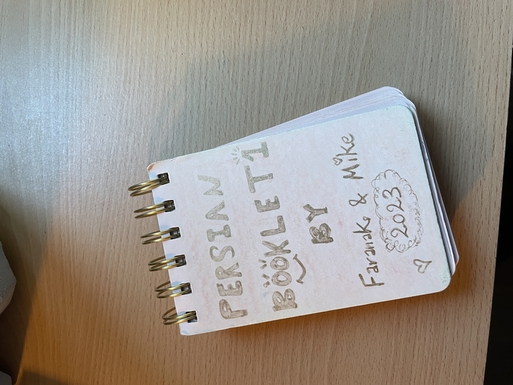 PERSIAN
BOOKLET 1
BY
Faranak & Mike
2023